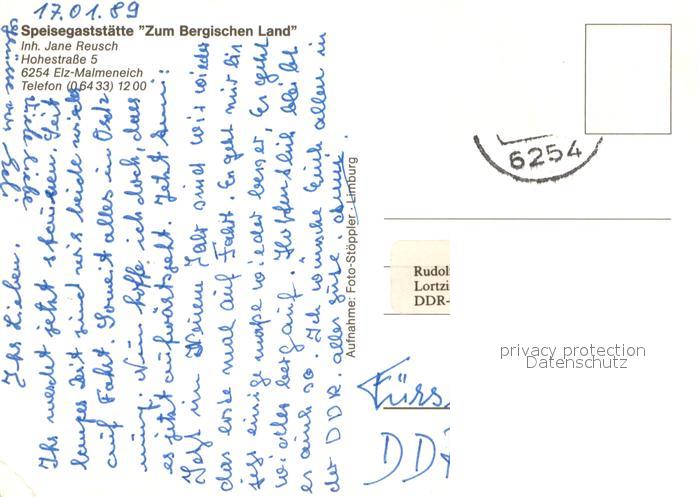 17.01.89
Speisegaststätte "Zum Bergischen Land"
Inh. Jane Reusch
Hohestraße 5
6254 Elz-Malmeneich
Telefon (0 64 33) 12 00
Ihr Lieben.
Ihr werdet jetzt staunen. Seit
langer Zeit sind wir beide wieder
auf Fahrt. Soweit alles in Ordn
nung. Nun hoffe ich doch, dass
es jetzt aufwärtsgeht. Jetzt sind
Jetzt im Neuen Jahr sind wir wieder
das erste mal auf Fahrt. Es geht mir bis
jetzt einige maße wieder besser, Es geht
wieder bergauf. Hoffentlich bleibt
es auch so. Ich wünsche Euch allen in
der DDR. alles gute
Aufnahme: Foto-Stöppler · Limburg
6254
Rudol
Lortzi
DDR-
Fürs
DD
privacy protection
Datenschutz